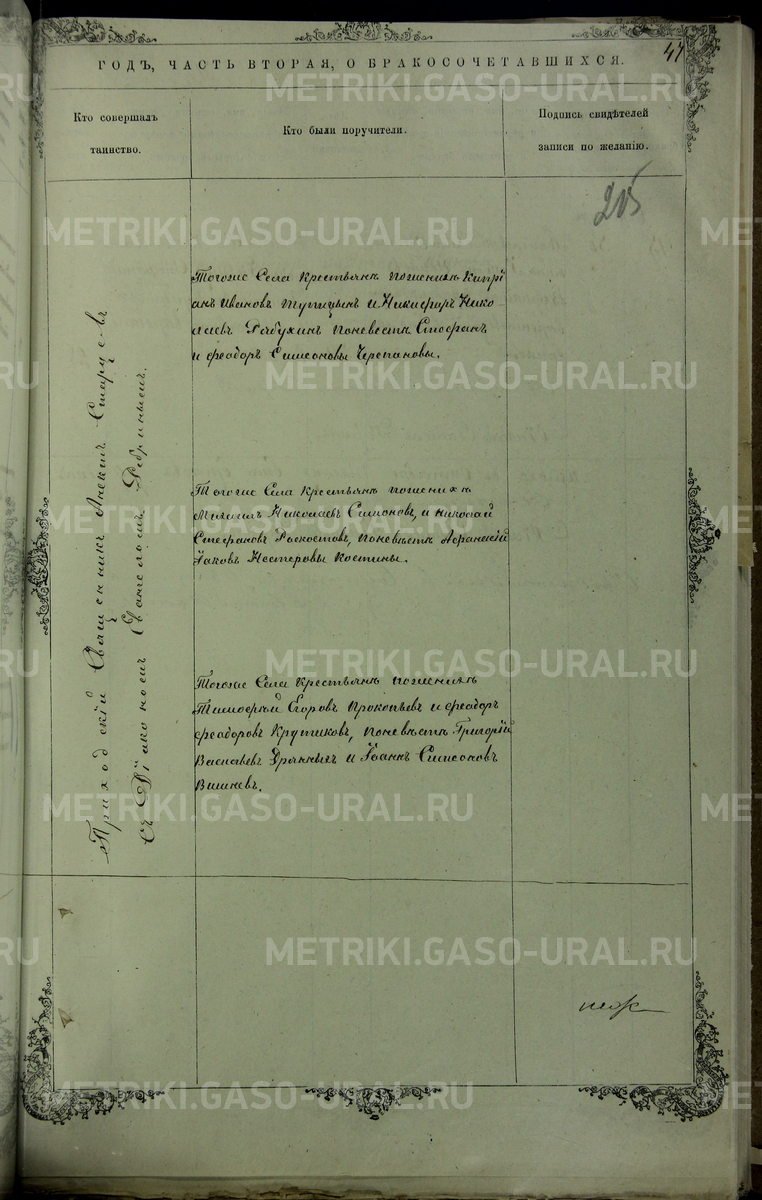 47
ГОДЪ, ЧАСТЬ ВТОРАЯ, О БРАКОСОЧЕТАВШИХСЯ.
Кто совершалъ
таинство.
Кто были поручители.
Подпись свидѣтелей
записи по желанію.
205
Приходскій Священникъ Алексѣй Старцевъ
съ Діакономъ Евангеломъ Ребринымъ.
Тогоже Села Крестьянъ пожениху Кипрі
анъ Ивановъ Тупицынъ и Никифоръ Нико
лаевъ Рябухинъ поневестѣ Стефанъ
и феодоръ Симеоновы Черепановы.
Тогоже Села Крестьянъ пожениху
Михаилъ Николаевъ Симоновъ, и николай
Стефановъ Роскостовъ, поневѣстѣ Афанасій
Іаковъ Нестеровы Костины.
Тогоже Села крестьянъ пожениху
Тимофѣй Егоровъ Прокопьевъ и феодоръ
феодоровъ Крутиковъ, поневѣстѣ Григорій
Васильевъ Дрянныхъ и Іоаннъ Симеоновъ
Вишневъ.
METRIKI.GASO-URAL.RU